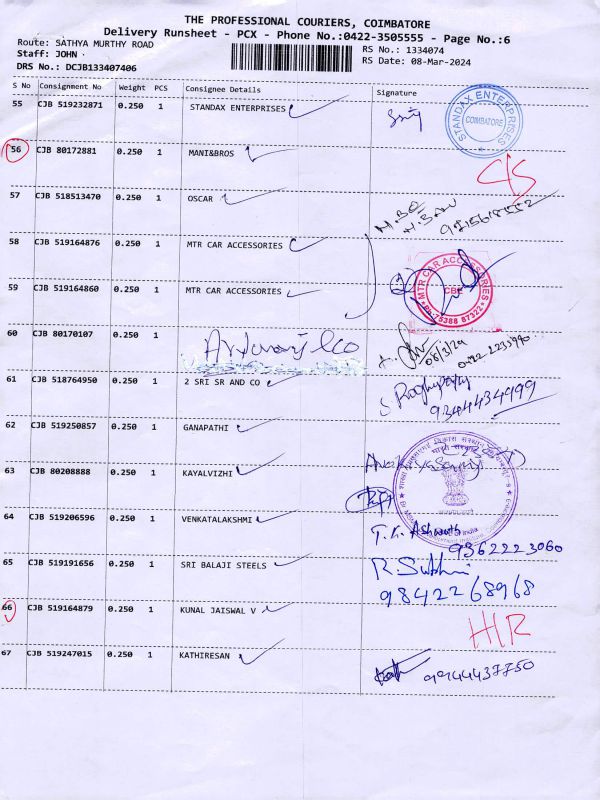 THE PROFESSIONAL COURIERS, COIMBATORE
Delivery Runsheet - PCX - Phone No.:0422-3505555 - Page No.:6
Route: SATHYA MURTHY ROAD
RS No.: 1334074
Staff: JOHN
RS Date: 08-Mar-2024
DRS No.: DCJB133407406
S No Consignment No Weight PCS Consignee Details Signature
55 CJB 519232871 0.250 1 STANDAX ENTERPRISES
STANDAX ENTERPRISES
COIMBATORE
56 CJB 80172881 0.250 1 MANI&BROS
57 CJB 518513470 0.250 1 OSCAR
58 CJB 519164876 0.250 1 MTR CAR ACCESSORIES
59 CJB 519164860 0.250 1 MTR CAR ACCESSORIES
MTR CAR ACCESSORIES
CBE
Ph:75388 87322
60 CJB 80170107 0.250 1
08/3/24
61 CJB 518764950 0.250 1 2 SRI SR AND CO
9344434999
62 CJB 519250857 0.250 1 GANAPATHI
63 CJB 80208888 0.250 1 KAYALVIZHI
64 CJB 519206596 0.250 1 VENKATALAKSHMI
9362223060
65 CJB 519191656 0.250 1 SRI BALAJI STEELS
9842268968
66 CJB 519164879 0.250 1 KUNAL JAISWAL V
67 CJB 519247015 0.250 1 KATHIRESAN
9944437750